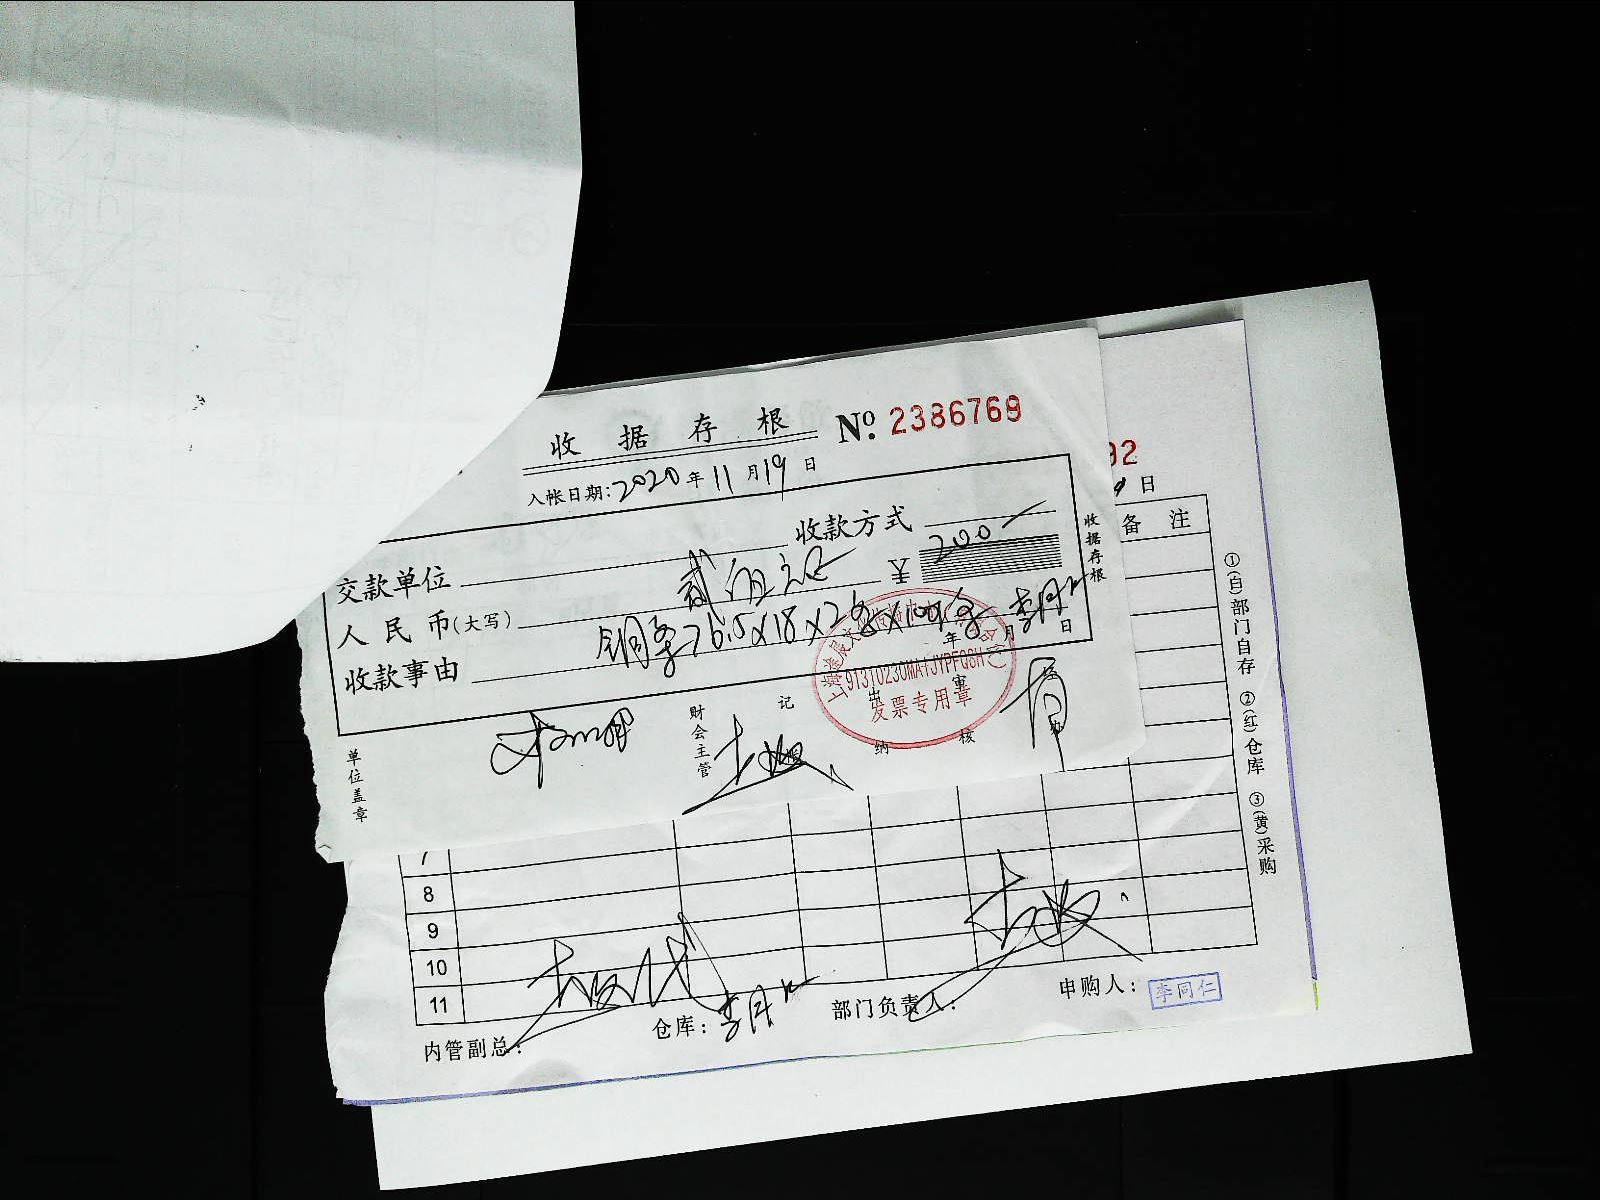 收据存根 № 2386769
入帐日期:2020年11月19日
92
日
交款单位 收款方式
人民币(大写) 贰佰元正 ¥ 200
收款事由 铜条76.5×18×2
年 月 日
收据存根
备 注
9131023
发票专用章
单位盖章
财会主管
记
出纳
审核
7
8
9
10
11
内管副总:
仓库:
部门负责人:
申购人: 李同仁
①(白)部门自存 ②(红)仓库 ③(黄)采购